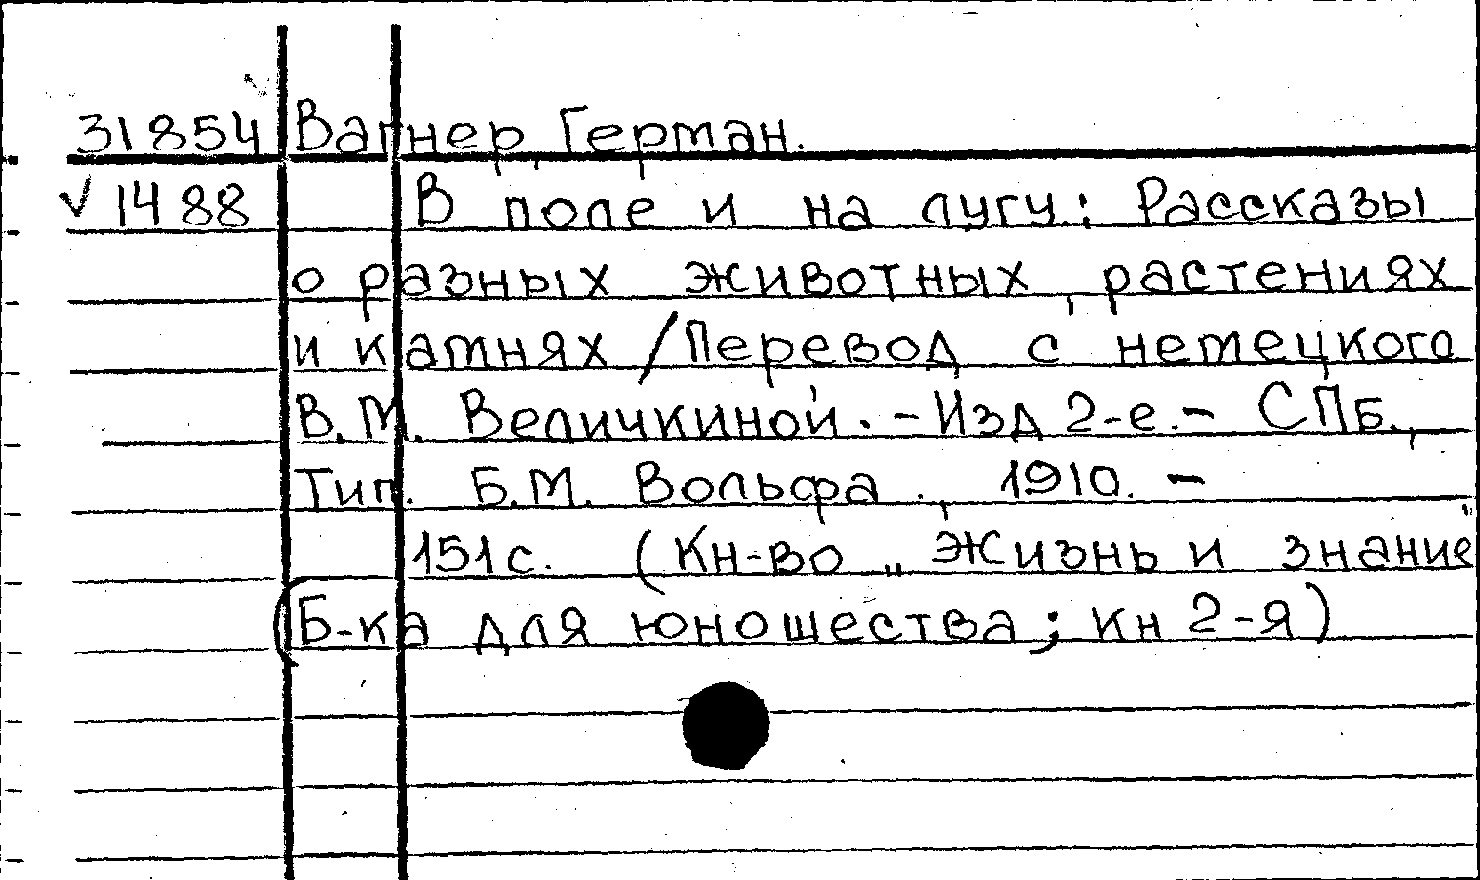 31854 Вагнер, Герман.
√ 1488 В поле и на лугу: Рассказы
о разных животных, растениях
и камнях / Перевод с немецкого
В.М. Величкиной. - Изд 2-е. - СПб.,
Тип. Б.М. Вольфа., 1910. -
151с. (Кн-во „Жизнь и знание"
(Б-ка для юношества; кн 2-я)